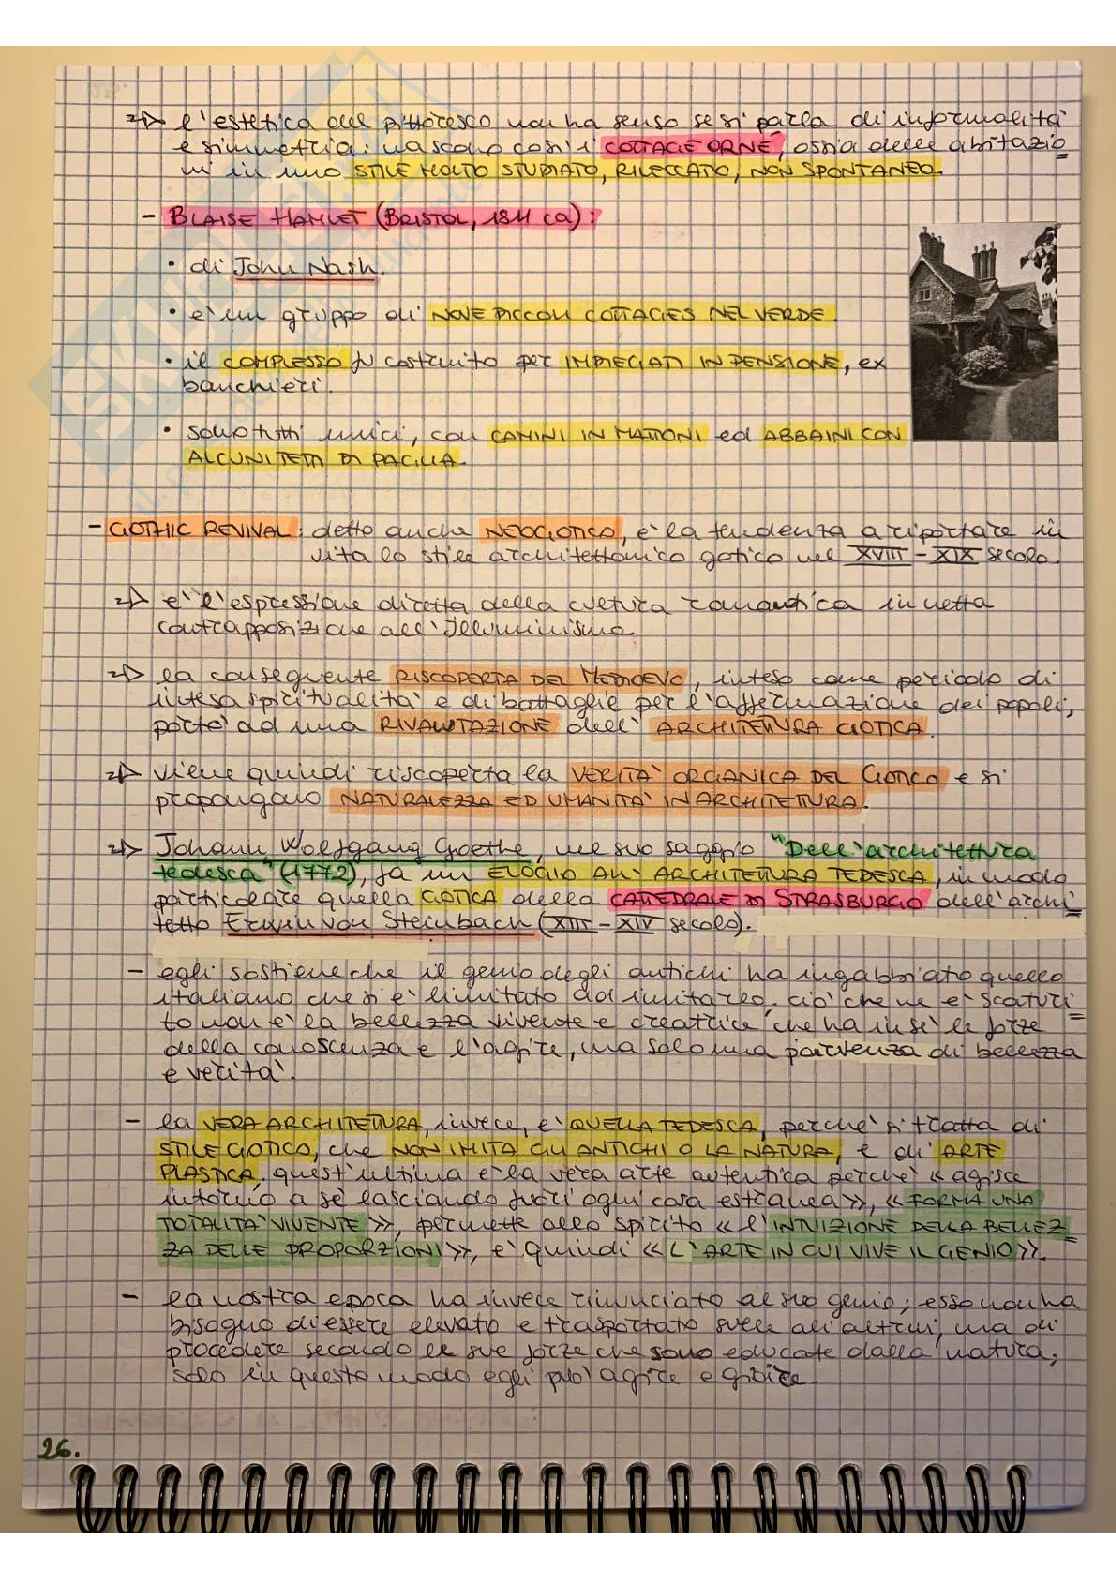 => l'estetica del pittoresco non ha senso se si parla di informalità
e simmetria: nascono così i COTTAGE ORNÉ, ossia delle abitazio=
ni in uno STILE MOLTO STUDIATO, RILECCATO, NON SPONTANEO.
- BLAISE HAMLET (BRISTOL, 1811 ca):
• di John Nash.
• è un gruppo di NOVE PICCOLI COTTAGES NEL VERDE.
• il COMPLESSO fu costruito per IMPIEGATI IN PENSIONE, ex
banchieri.
• sono tutti unici, con CAMINI IN MATTONI ed ABBAINI CON
ALCUNI TETTI DI PAGLIA.
- GOTHIC REVIVAL: detto anche NEOGOTICO, è la tendenza a riportare in
vita lo stile architettonico gotico nel XVIII - XIX secolo.
=> è l'espressione diretta della cultura romantica in netta
contrapposizione all'Illuminismo.
=> la conseguente RISCOPERTA DEL MEDIOEVO, inteso come periodo di
intesa spiritualità e di battaglie per l'affermazione dei popoli,
portò ad una RIVALUTAZIONE dell'ARCHITETTURA GOTICA.
=> viene quindi riscoperta la VERITÀ ORGANICA DEL GOTICO e si
propongono NATURALEZZA ED UMANITÀ IN ARCHITETTURA.
=> Johann Wolfgang Goethe, nel suo saggio "Dell'architettura
tedesca" (1772), fa un ELOGIO ALL'ARCHITETTURA TEDESCA, in modo
particolare quella GOTICA della CATTEDRALE DI STRASBURGO dell'archi=
tetto Erwin von Steinbach (XIII - XIV secolo).
- egli sostiene che il genio degli antichi ha ingabbiato quello
italiano che si è limitato ad imitarlo. ciò che ne è scaturi=
to non è la bellezza vivente e creatrice, che ha in sé le forze
della conoscenza e l'agire, ma solo una parvenza di bellezza
e verità.
- la VERA ARCHITETTURA, invece, è QUELLA TEDESCA, perché si tratta di
STILE GOTICO, che NON IMITA GLI ANTICHI O LA NATURA, e di ARTE
PLASTICA, quest'ultima è la vera arte autentica perché «agisce
intorno a sé lasciando fuori ogni cosa estranea», «FORMA UNA
TOTALITÀ VIVENTE», permette allo spirito «l'INTUIZIONE DELLA BELLEZ=
ZA DELLE PROPORZIONI», è quindi «L'ARTE IN CUI VIVE IL GENIO».
- la nostra epoca ha invece rinunciato al suo genio; esso non ha
bisogno di essere elevato e trasportato sulle ali altrui, ma di
procedere secondo le sue forze che sono educate dalla natura;
solo in questo modo egli può agire e gioire
26.